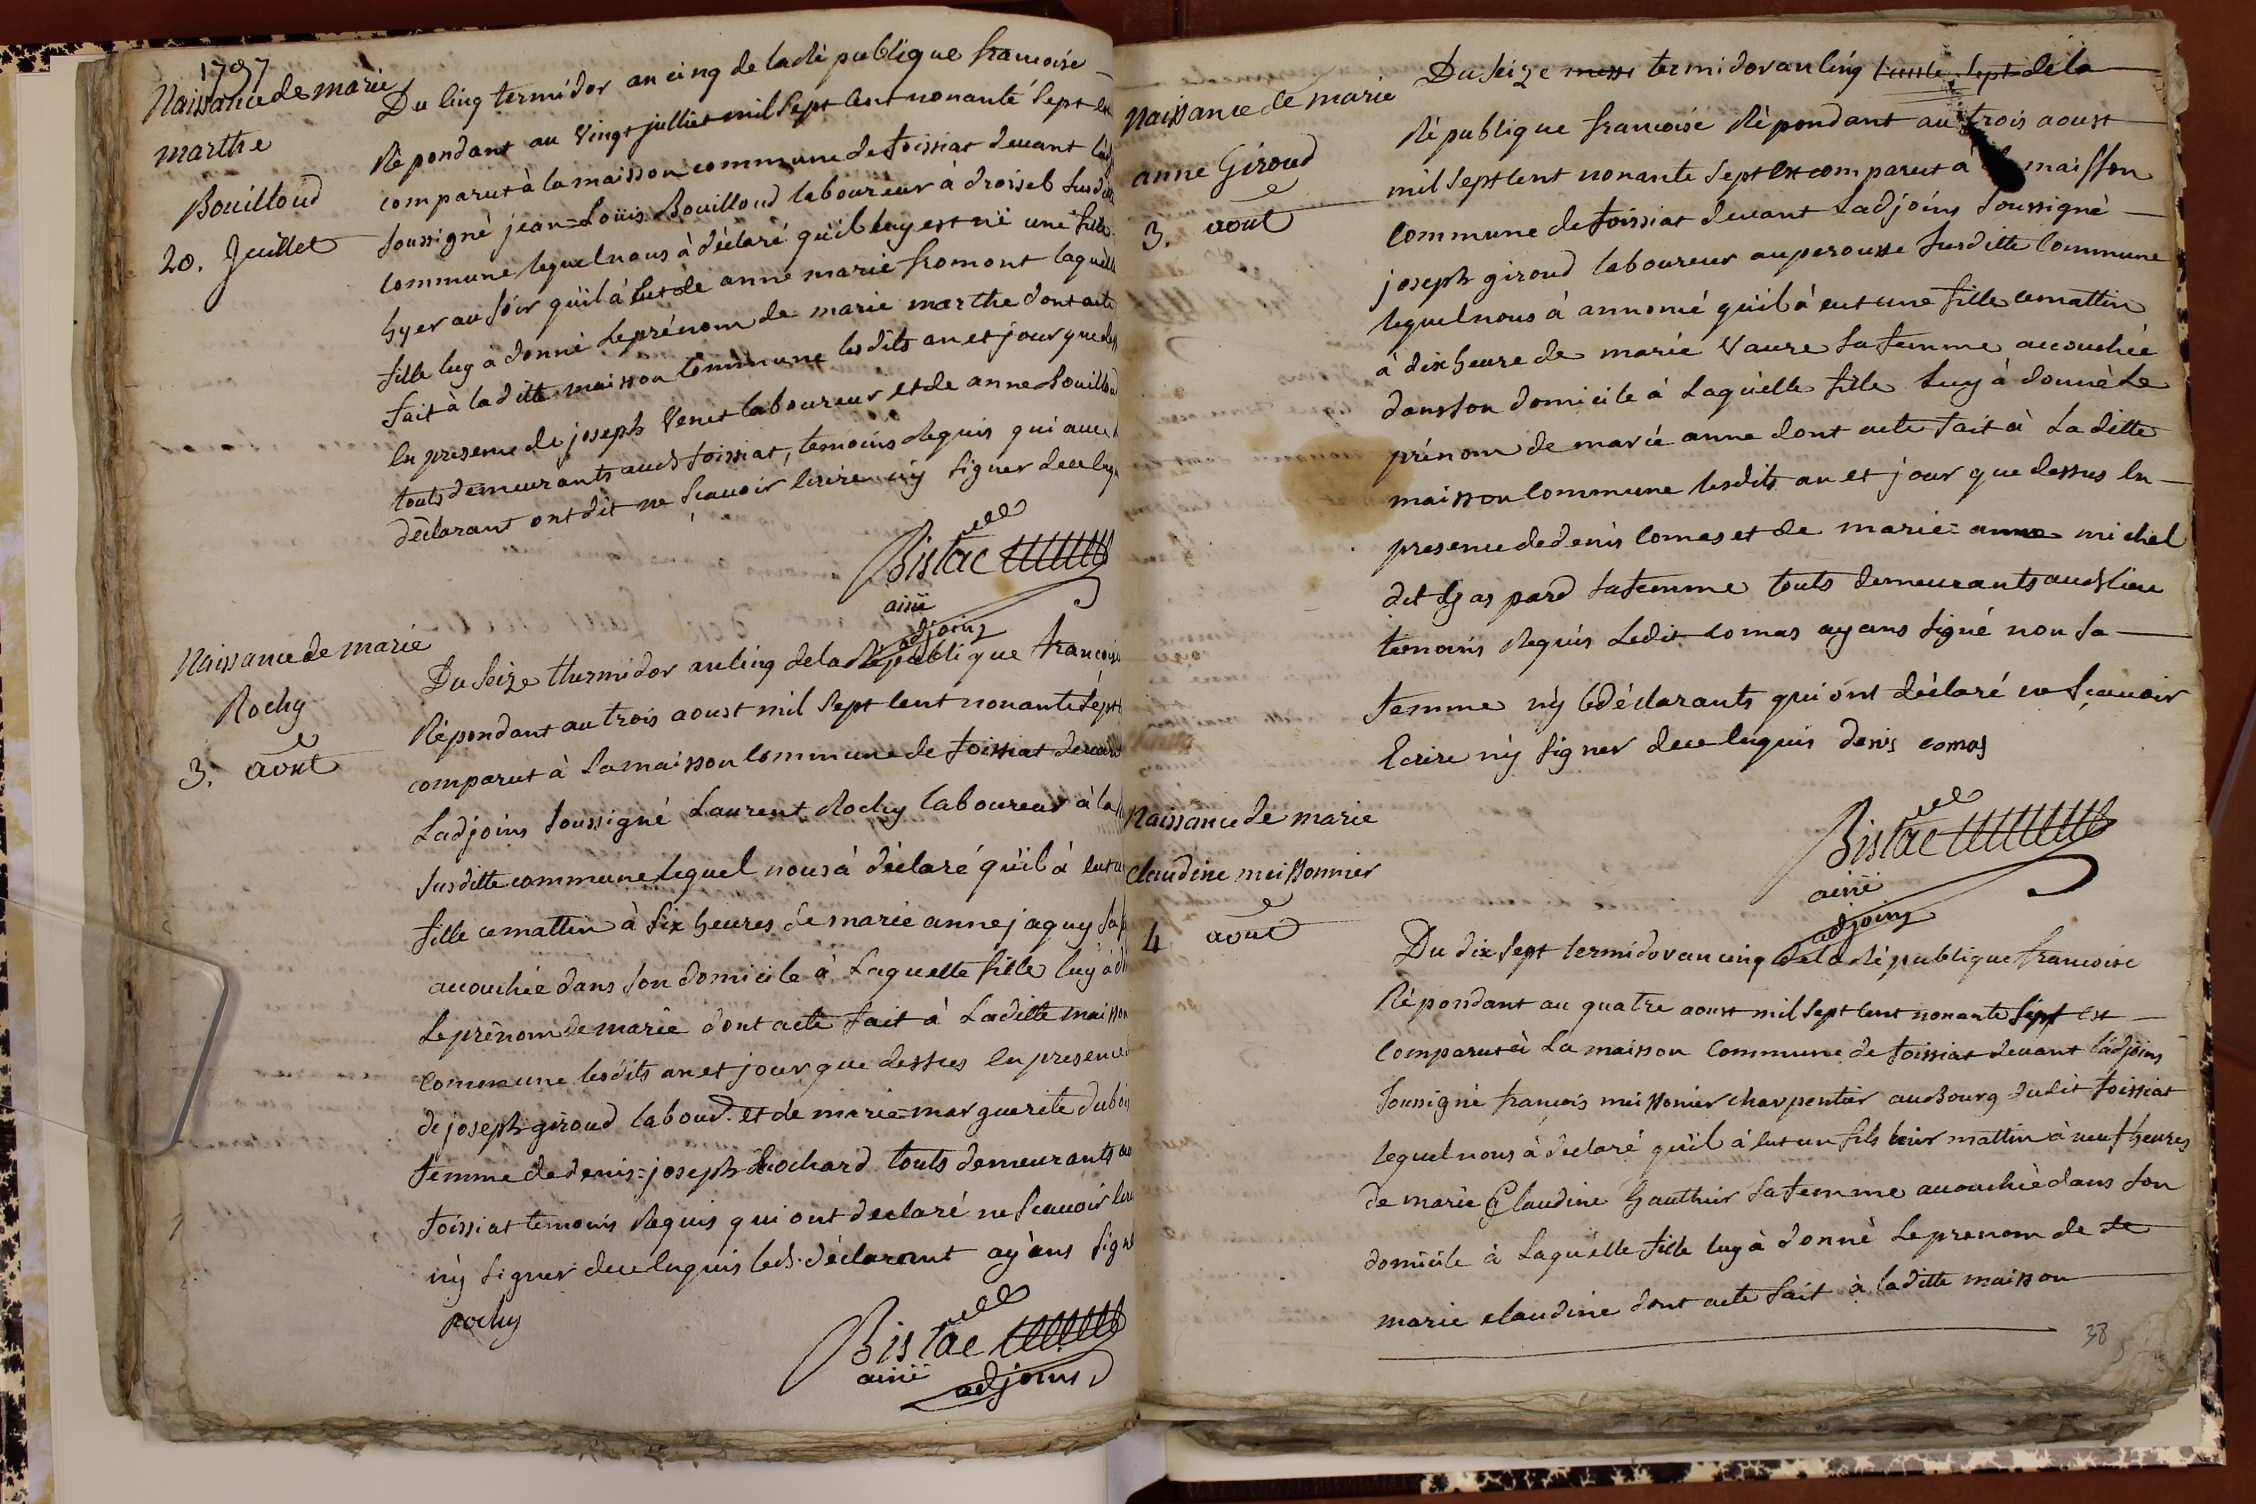 1797
Naissance de marie
marthe
Bouilloud
20. Juillet
Du cinq termidor an cinq de la Rèpublique francoise
Rèpondant au vingt julliet mil sept cent nonante sept est
comparut à la maisson commune de toissiat devant
soussignè jean=Loüis Bouilloud laboureur à droisel susditte
commune lequel nous à dèclaré qùil luy est nï une fille
hyer au soir qùil à eut de anne marie fromont laquelle
fille luy à donnè le prénom de marie marthe dont acte
fait à la ditte maisson commune lesdits an et jour que dess
en presence de joseph Venet laboureur et de anne Bouilloud
touts demeurants aud toissiat, temoins Requis qui avec
dèclarant ont dit ne sçavoir écrire nÿ signer de ce
Bistac
ainé
adjoins
Naissance de marie
Rochy
3. aout
Du seize thermidor an cinq de la Republique francoise
Rèpondant au trois aoust mil sept cent nonante sept
comparut à la maisson commune de toissiat devant
Ladjoins soussigné Laurent Rochy laboureur à la
susditte commune lequel nous à dèclaré qùil à eut
fille ce mattin à six heures de marie anne jaquy sa
accouchée dans son domicile à laquelle fille luy à
le prènom de marie dont acte fait à La ditte maisson
commune lesdits an et jour que dessus en presence
de joseph giroud labour. et de marie=marguerite dubois
femme de denis=joseph Brochard touts demeurants au
toissiat temoins Requis qui ont declaré ne sçavoir
nÿ signer de ce Requis led. dèclarant aÿans signé
Rochy
Bistac
ainé adjoins
Naissance de marie
anne Giroud
3. aout
Du seize termidor an cinq de la
Rèpublique francoise Rèpondant au trois aoust
mil sept cent nonante sept est comparut a maisson
commune de toissiat devant Ladjoins soussignè
joseph giroud laboureur au perousse susditte commune
lequel nous à annoncé qùil à eut une fille ce mattin
à dix heure de marie Vaure sa femme accouchée
dans son domicile à Laqùelle fille luy à donnè Le
prénom de marie anne dont acte fait à La ditte
maisson commune lesdits an et jour que dessus en
presence de denis comas et de marie=anne michel
dit gaspard sa femme touts demeurants aud lieu
temoins Requis Ledit comas ayans signé non sa
femme nÿ le dèclarants qui ont dèclaré ne sçavoir
Ecrire nÿ signer de ce Requis denis comas
Bistac
ainé
adjoins
Naissance de marie
Claudine meissonnier
4 aout
Du dix sept termidor an cinq de la Rèpublique francoise
Rèpondant au quatre aoust mil sept cent nonante sept est
comparut à La maisson commune de toissiat devant Ladjoins
soussigné francois meissonier charpentier au bourg dudit toissiat
lequel nous à declaré qùil à eut un fils hier mattin à neuf heures
de marie Claudine Gauthier sa femme accouchèe dans son
domicile à Laqùelle fille luy à donnè Le prenom de de
marie claudine dont acte fait à la ditte maisson
38